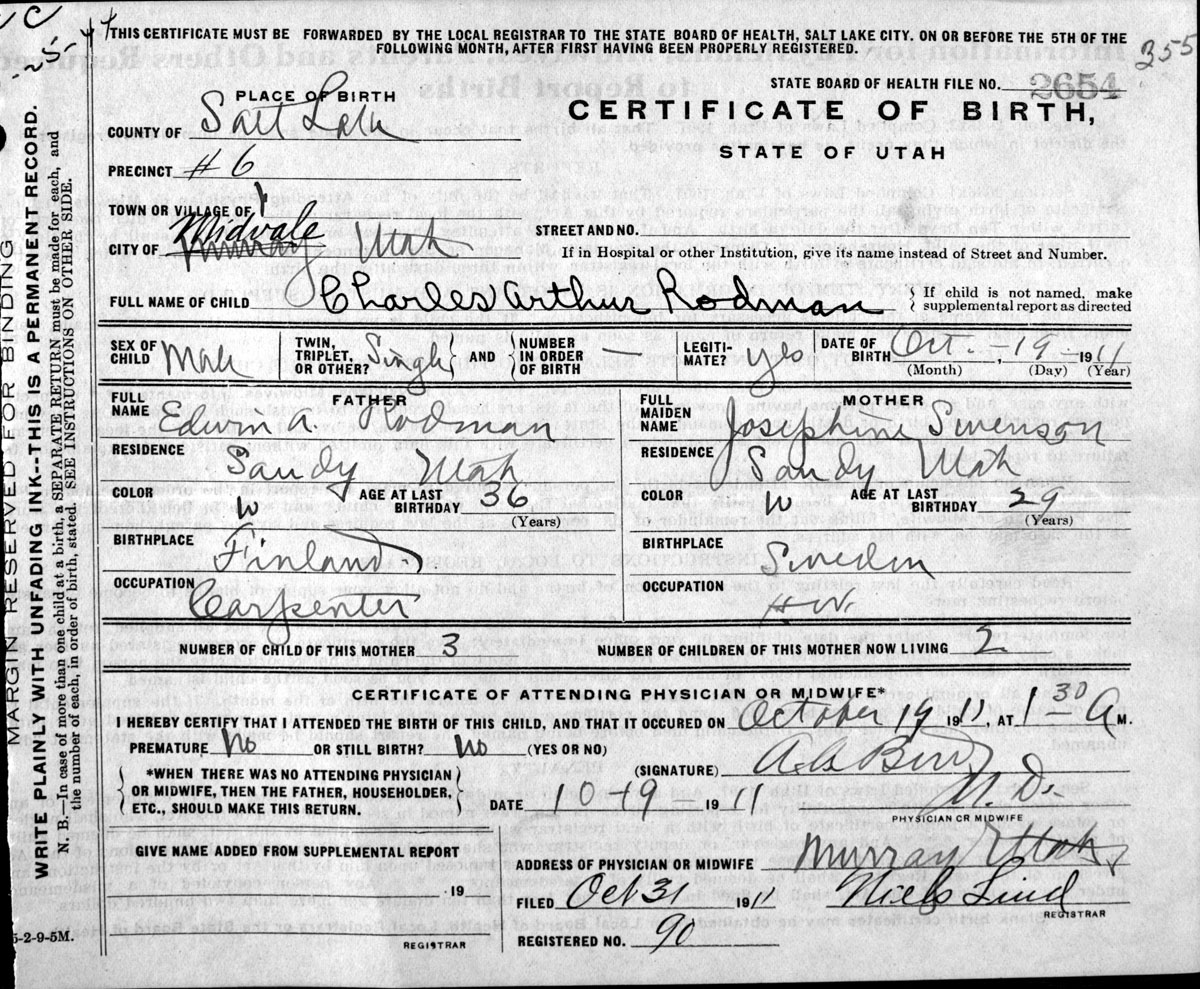 THIS CERTIFICATE MUST BE FORWARDED BY THE LOCAL REGISTRAR TO THE STATE BOARD OF HEALTH, SALT LAKE CITY. ON OR BEFORE THE 5TH OF THE
FOLLOWING MONTH, AFTER FIRST HAVING BEEN PROPERLY REGISTERED.
355
STATE BOARD OF HEALTH FILE NO. 2654
PLACE OF BIRTH
CERTIFICATE OF BIRTH,
STATE OF UTAH
COUNTY OF Salt Lake
PRECINCT #6
TOWN OR VILLAGE OF
Midvale
CITY OF Murray Utah
STREET AND NO.
If in Hospital or other Institution, give its name instead of Street and Number.
FULL NAME OF CHILD Charles Arthur Rodman
If child is not named, make
supplemental report as directed
SEX OF CHILD Male
TWIN, TRIPLET, OR OTHER? Single AND NUMBER IN ORDER OF BIRTH —
LEGITI-MATE? yes
DATE OF BIRTH Oct. - 19 - 1911
(Month) (Day) (Year)
FATHER
FULL NAME Edwin A. Rodman
RESIDENCE Sandy Utah
COLOR W AGE AT LAST BIRTHDAY 36
(Years)
BIRTHPLACE Finland
OCCUPATION Carpenter
MOTHER
FULL MAIDEN NAME Josephine Swenson
RESIDENCE Sandy Utah
COLOR W AGE AT LAST BIRTHDAY 29
(Years)
BIRTHPLACE Sweden
OCCUPATION H.W.
NUMBER OF CHILD OF THIS MOTHER 3 NUMBER OF CHILDREN OF THIS MOTHER NOW LIVING 2
CERTIFICATE OF ATTENDING PHYSICIAN OR MIDWIFE*
I HEREBY CERTIFY THAT I ATTENDED THE BIRTH OF THIS CHILD, AND THAT IT OCCURED ON October 19 1911, AT 1 30 A M.
PREMATURE No OR STILL BIRTH? No (YES OR NO)
*WHEN THERE WAS NO ATTENDING PHYSICIAN
OR MIDWIFE, THEN THE FATHER, HOUSEHOLDER,
ETC., SHOULD MAKE THIS RETURN.
(SIGNATURE)
M.D.
DATE 10-19- 1911
PHYSICIAN OR MIDWIFE
GIVE NAME ADDED FROM SUPPLEMENTAL REPORT
19
REGISTRAR
ADDRESS OF PHYSICIAN OR MIDWIFE Murray Utah
FILED Oct 31 1911 Niels Lind
REGISTRAR
REGISTERED NO. 90
MARGIN RESERVED FOR BINDING
WRITE PLAINLY WITH UNFADING INK--THIS IS A PERMANENT RECORD.
N. B.—In case of more than one child at a birth, a SEPARATE RETURN must be made for each, and
the number of each, in order of birth, stated. SEE INSTRUCTIONS ON OTHER SIDE.
5-2-9-5M.